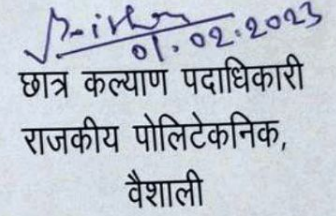 01.02.2023
छात्र कल्याण पदाधिकारी
राजकीय पोलिटेकनिक,
वैशाली